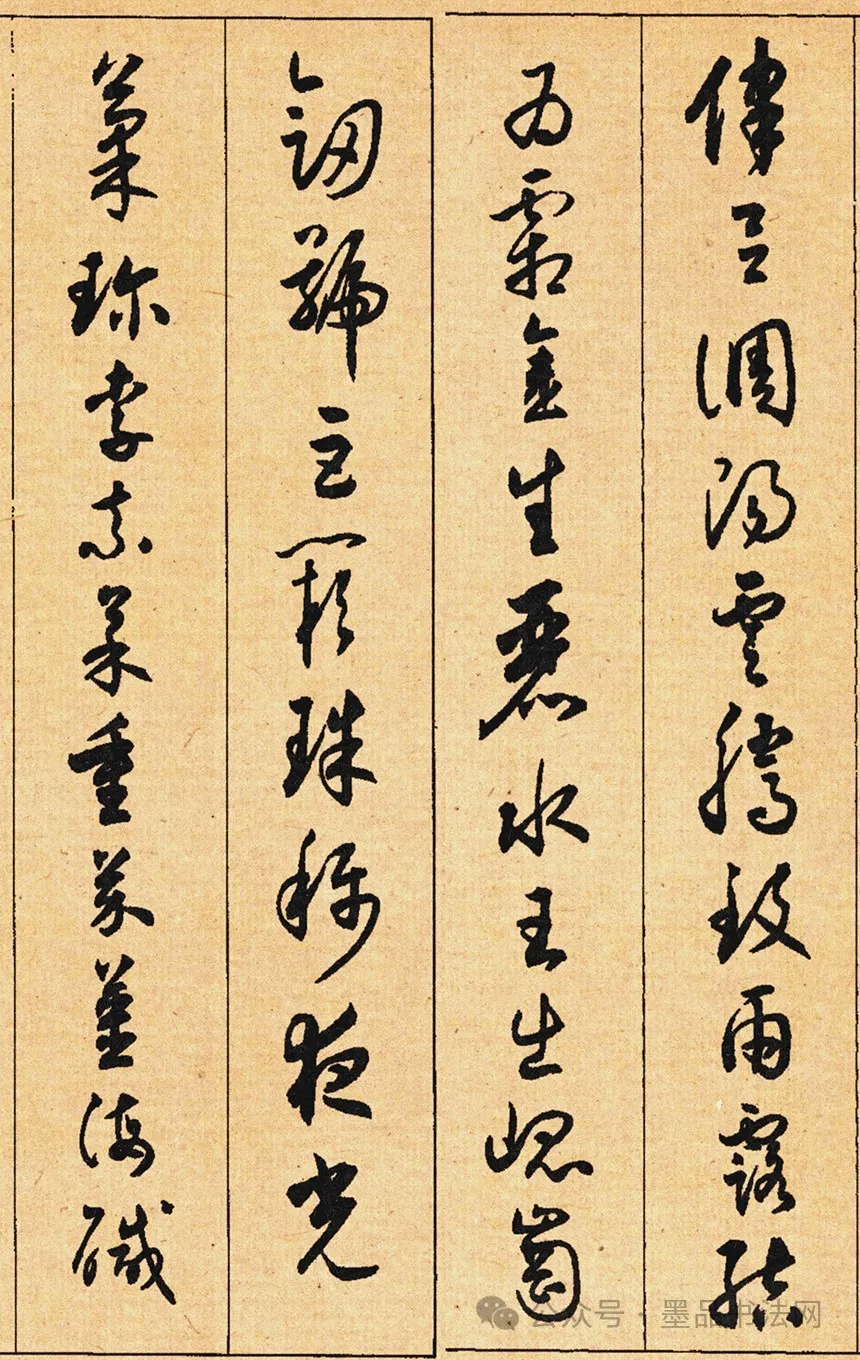 律呂調陽雲騰致雨露結
為霜金生麗水玉出崐崗
劒號巨闕珠稱夜光
菓珍李柰菜重芥薑海醎
公众号 · 墨品书法网